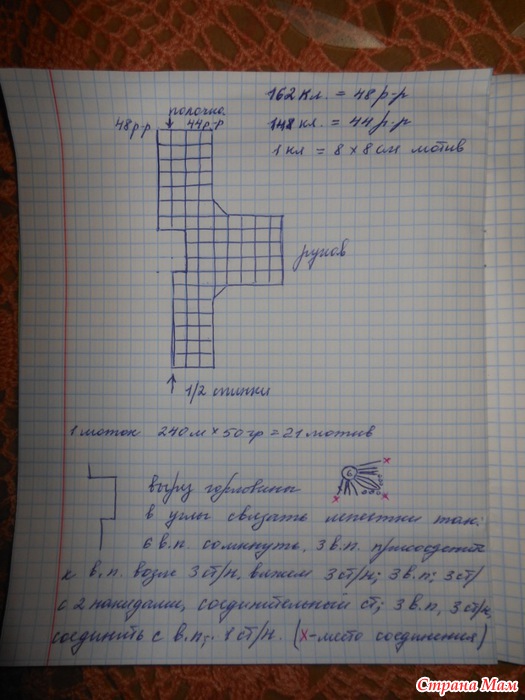 162 кл. = 48 р-р
полочка.
48 р-р 44 р-р
148 кл. = 44 р-р
1 кл = 8 х 8 см мотив
рукав
1/2 спинки
1 моток 240 м х 50 гр = 21 мотив
вырез горловины
6
х
х
х
в углы связать лепестки так:
6 в.п. сомкнуть, 3 в.п. присоединить
к в.п. возле 3 ст/н, вяжем 3 ст/н; 3 в.п; 3 ст/
с 2 накидами, соединительный ст; 3 в.п, 3 ст/н,
соединить с в.п; 1 ст/н. (х - место соединения)
Страна Мам